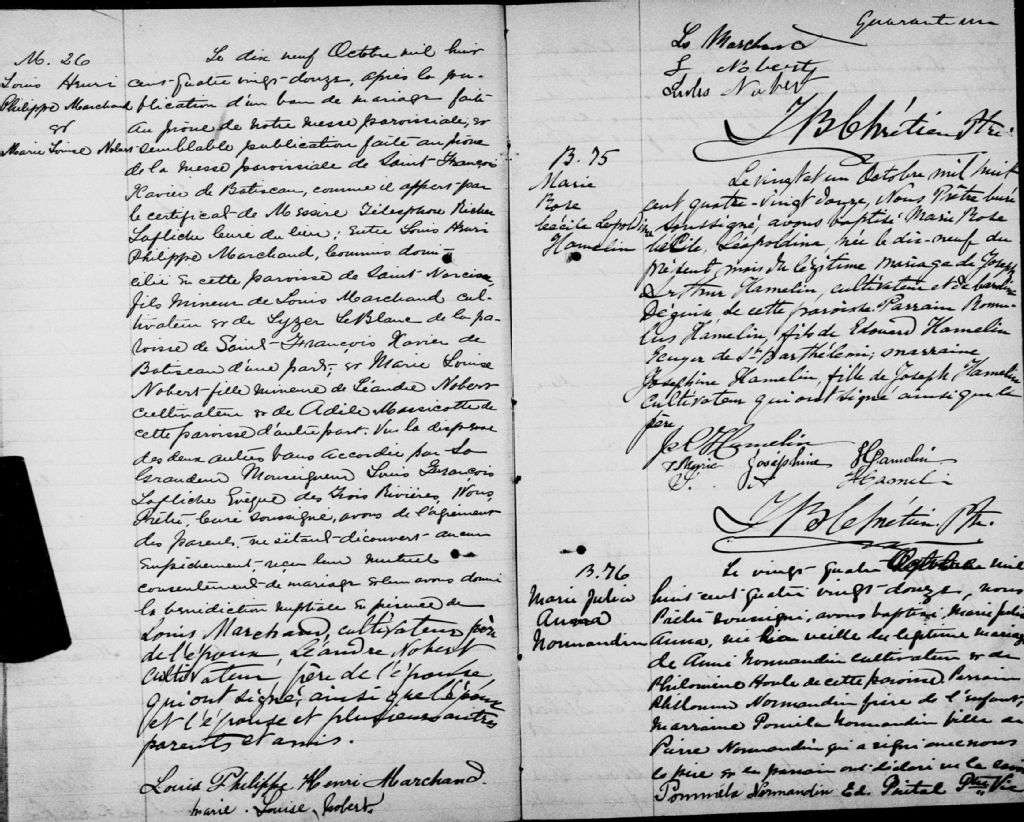 M. 26
Louis Henri
Philippe Marchand
&
Marie Louise Nobert
Le dix neuf Octobre mil huit
cent quatre vingt-douze, après la pu-
blication d'un ban de mariage faite
au prône de notre messe paroissiale, &
semblable publication faite au prône
de la messe paroissiale de Saint-François
Xavier de Batiscan, comme il appert par
le certificat de Messire Télesphore Richer
Lafleche Curé du lieu; Entre Louis Henri
Philippe Marchand, Commis domi-
cilié en cette paroisse de Saint Narcisse,
fils mineur de Louis Marchand cul-
tivateur & de Lyzer LeBlanc de la pa-
roisse de Saint-François Xavier de
Batiscan d'une part; & Marie Louise
Nobert fille mineure de Léandre Nobert
cultivateur & de Adile Massicotte de
cette paroisse d'autre part. Vu la dispense
des deux autres bans accordée par Sa
Grandeur Monseigneur Louis François
Lafleche Evêque des Trois Rivières, Nous,
Prêtre, Curé soussigné, avons de l'agrément
des parents, ne s'étant découvert aucun
Empêchement, reçu leur mutuel
consentement de mariage & leur avons donné
la bénédiction nuptiale en présence de
Louis Marchand, cultivateur, père
de l'époux, Léandre Nobert
cultivateur, père de l'épouse,
qui ont signé, ainsi que l'époux
et l'épouse et plusieurs autres
parents et amis.
Louis Philippe Henri Marchand
Marie. Louise Nobert
Quarante un
Ls Marchand
L Nobert
Jules Nobert
J B Chrétien Ptre.
B. 75
Marie
Rose
Cécile Léopoldine
Hamelin
Le vingt et un Octobre mil huit
cent quatre-vingt douze, Nous Prêtre curé
soussigné, avons baptisé Marie Rose
Cécile, Léopoldina, née le dix-neuf du
présent mois du légitime mariage de Joseph
Arthur Hamelin, cultivateur et de Caroline
Déguise de cette paroisse. Parrain Romu-
lus Hamelin, fils de Edouard Hamelin
Ecuyer de St Barthélemi; marraine
Joséphine Hamelin, fille de Joseph Hamelin
cultivateur qui ont signé ainsi que le
père
Hamelin
Marie Joséphine Hamelin
J. A Hamelin
J B Chrétien, Ptr.
B. 76
Marie Julia
Anna
Normandin
Le vingt-quatre Octobre mil
huit cent quatre vingt douze, nous
Prêtre soussigné, avons baptisé Marie Julia
Anna, née la veille du légitime mariage
de Aimé Normandin cultivateur & de
Philomène Houle de cette paroisse Parrain
Philonme Normandin frère de l'enfant,
marraine Pomila Normandin fille de
Pierre Normandin qui a signé avec nous
le père & le parrain ont déclaré ne le savoir
Pommela Normandin Ed. Poitel Ptre Vic